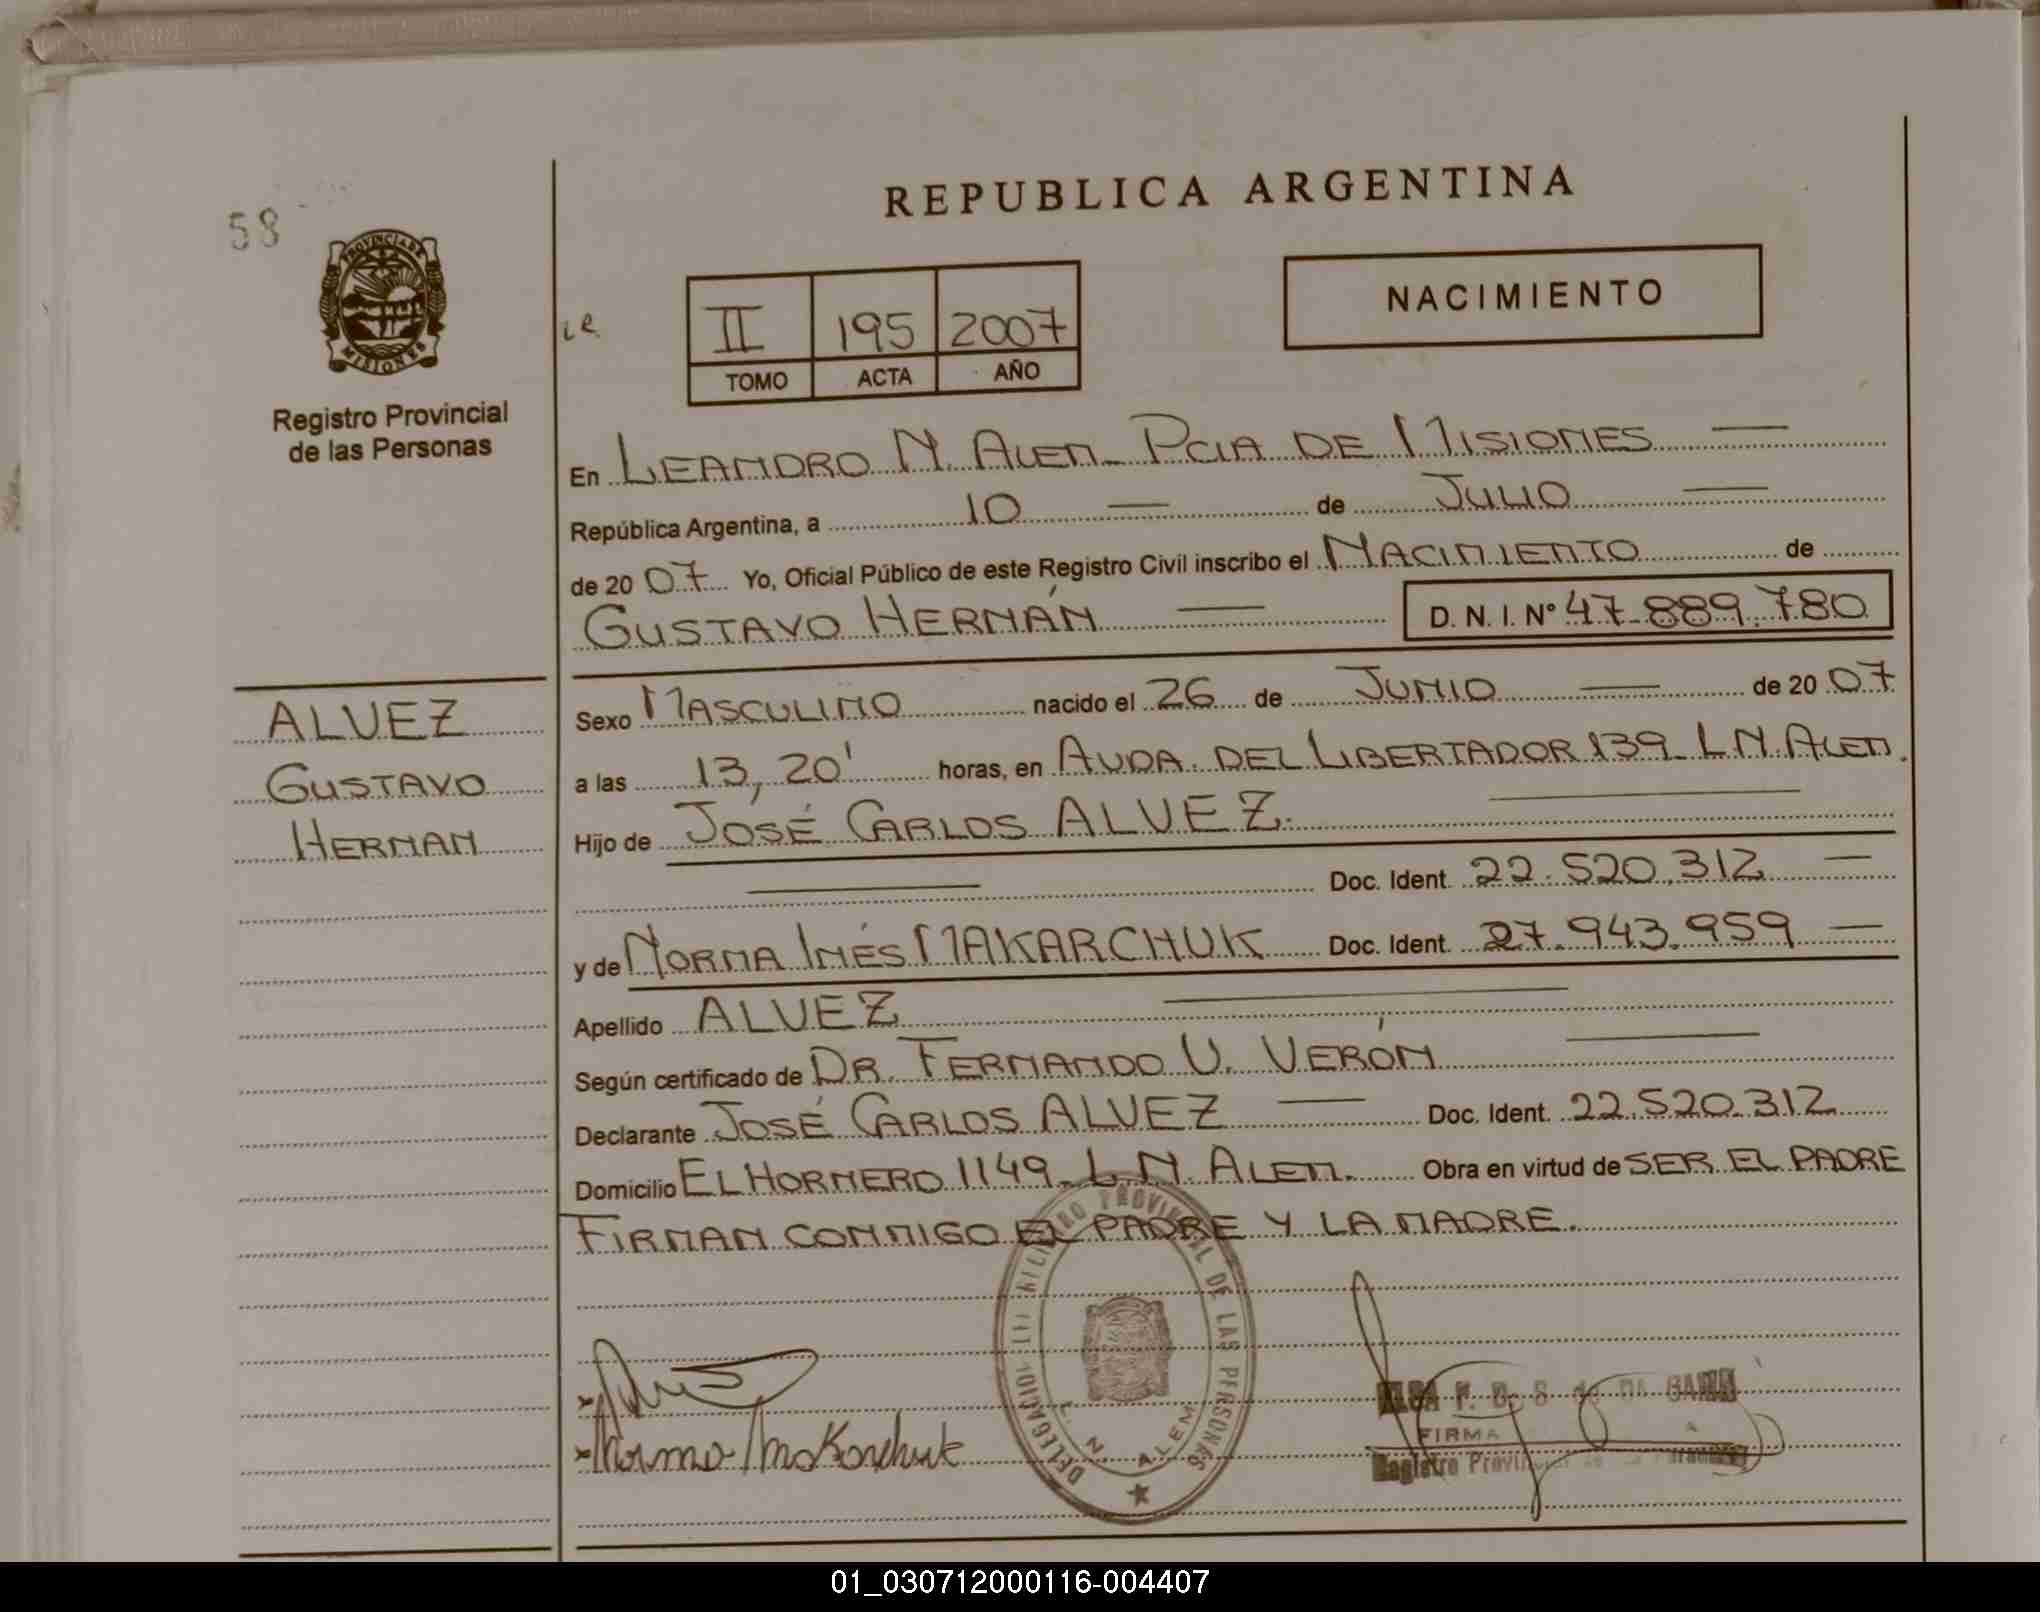 58
REPUBLICA ARGENTINA
PROVINCIA DE
MISIONES
Registro Provincial
de las Personas
II 195 2007
TOMO ACTA AÑO
NACIMIENTO
En LEANDRO N. ALEM - PCIA DE MISIONES —
República Argentina, a 10 — de JULIO —
de 20 07 Yo, Oficial Público de este Registro Civil inscribo el NACIMIENTO de
GUSTAVO HERNÁN — D. N. I. Nº 47.889.780
ALVEZ
GUSTAVO
HERNAN
Sexo MASCULINO nacido el 26 de JUNIO — de 20 07
a las 13,20' horas, en AVDA. DEL LIBERTADOR 139 - L.N. ALEM.
Hijo de JOSÉ CARLOS ALVEZ. —
— Doc. Ident. 22.520.312 —
y de NORMA INÉS MAKARCHUK Doc. Ident. 27.943.959 —
Apellido ALVEZ —
Según certificado de DR. FERNANDO V. VERÓN —
Declarante JOSÉ CARLOS ALVEZ — Doc. Ident. 22.520.312
Domicilio EL HORNERO 1149 - L.N. ALEM. Obra en virtud de SER EL PADRE
FIRMAN CONMIGO EL PADRE Y LA MADRE.
DELEGACION DEL REGISTRO PROVINCIAL DE LAS PERSONAS
L. N. ALEM
Norma Makarchuk
FIRMA
Registro Provincial de las Personas
01_030712000116-004407